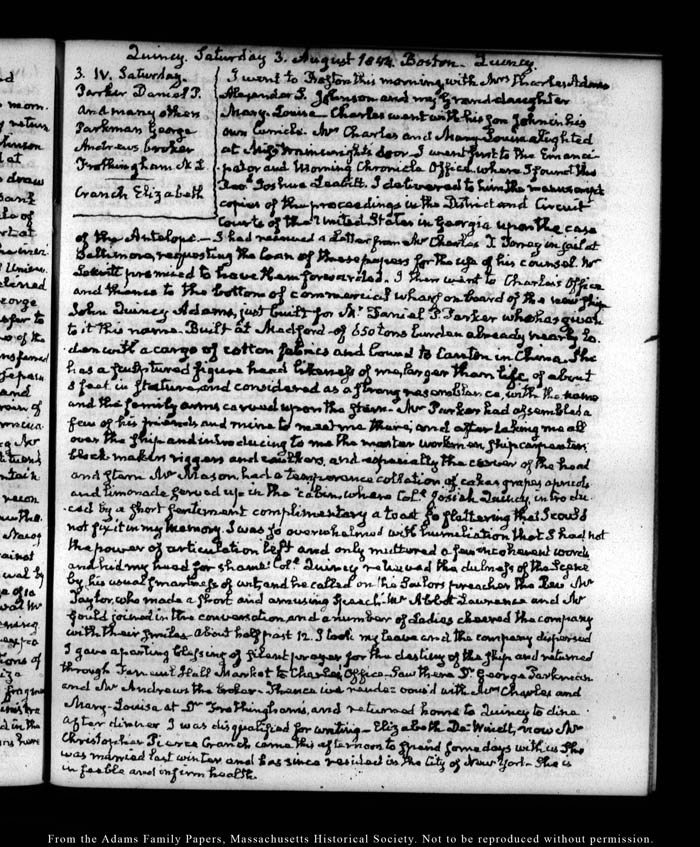 Quincy. Saturday 3. August 1844. Boston. Quincy.
3. IV. Saturday.
Parker Daniel P.
and many others
Parkman George
Andrews broker
Frothingham N. L
Cranch Elizabeth
I went to Boston this morning with Mrs Charles Adams
Alexander S. Johnson and my Granddaughter
Mary-Louisa. Charles went with his son John in his
own vehicle. Mrs Charles and Mary Louisa alighted
at Miss Wainwright's door. I went first to the Emanci-
pator and Morning Chronicle Office, where I found the
Revd Joshua Leavitt. I delivered to him the manuscript
copies of the proceedings in the District and Circuit
Courts of the United States in Georgia upon the case
of the Antelope.— I had received a Letter from Mr Charles T. Torrey in jail at
Baltimore, requesting the loan of these papers for the use of his counsel. Mr
Leavitt promised to have them forwarded. I then went to Charles's Office
and thence to the bottom of commercial wharf on board of the new ship
John Quincy Adams, just built for Mr Daniel P. Parker who has given
to it this name. Built at Medford of 650 tons burden already nearly la-
den with a cargo of cotton fabrics and bound to Canton in China. She
has a sculptured figure head likeness of me, larger than life, of about
8 feet in stature and considered as a strong resemblance, with the name
and the family arms carved upon the stern. Mr Parker had assembled a
few of his friends and mine to meet me there, and after taking me all
over the ship and introducing to me the master workmen, ship carpenter,
block maker, riggers and caulkers, and especially the carver of the head
and stern Mr Mason, had a temperance collation of cakes grapes apricots
and limonade served up in the cabin, where Coll Josiah Quincy, introdu-
ced by a short sentiment complimentary a toast so flattering that I could
not fix it in my memory. I was so overwhelmed with humiliation that I had not
the power of articulation left and only muttered a few incoherent words
and hid my head for shame. Coll Quincy relieved the dulness of the scene
by his usual smartness of wit, and he called on the Sailors preacher the Revd Mr
Taylor, who made a short and amusing speech. Mr Abbot Lawrence and Mr
Gould joined in the conversation and a number of Ladies cheered the company
with their smiles. About half past 12. I took my leave and the company dispersed
I gave a parting blessing of silent prayer for the destiny of the ship and returned
through Faneuil Hall Market to Charles's Office. Saw there Dr George Parkman
and Mr Andrews the broker. Thence we rendezvous'd with Mrs Charles and
Mary-Louisa at Dr Frothingham's, and returned home to Quincy to dine
After dinner I was disqualified for writing. Elizabeth De Windt, now Mrs
Christopher Pearse Cranch came this afternoon to spend some days with us. She
was married last winter and has since resided in the City of New York. She is
in feeble and infirm health.
From the Adams Family Papers, Massachusetts Historical Society. Not to be reproduced without permission.